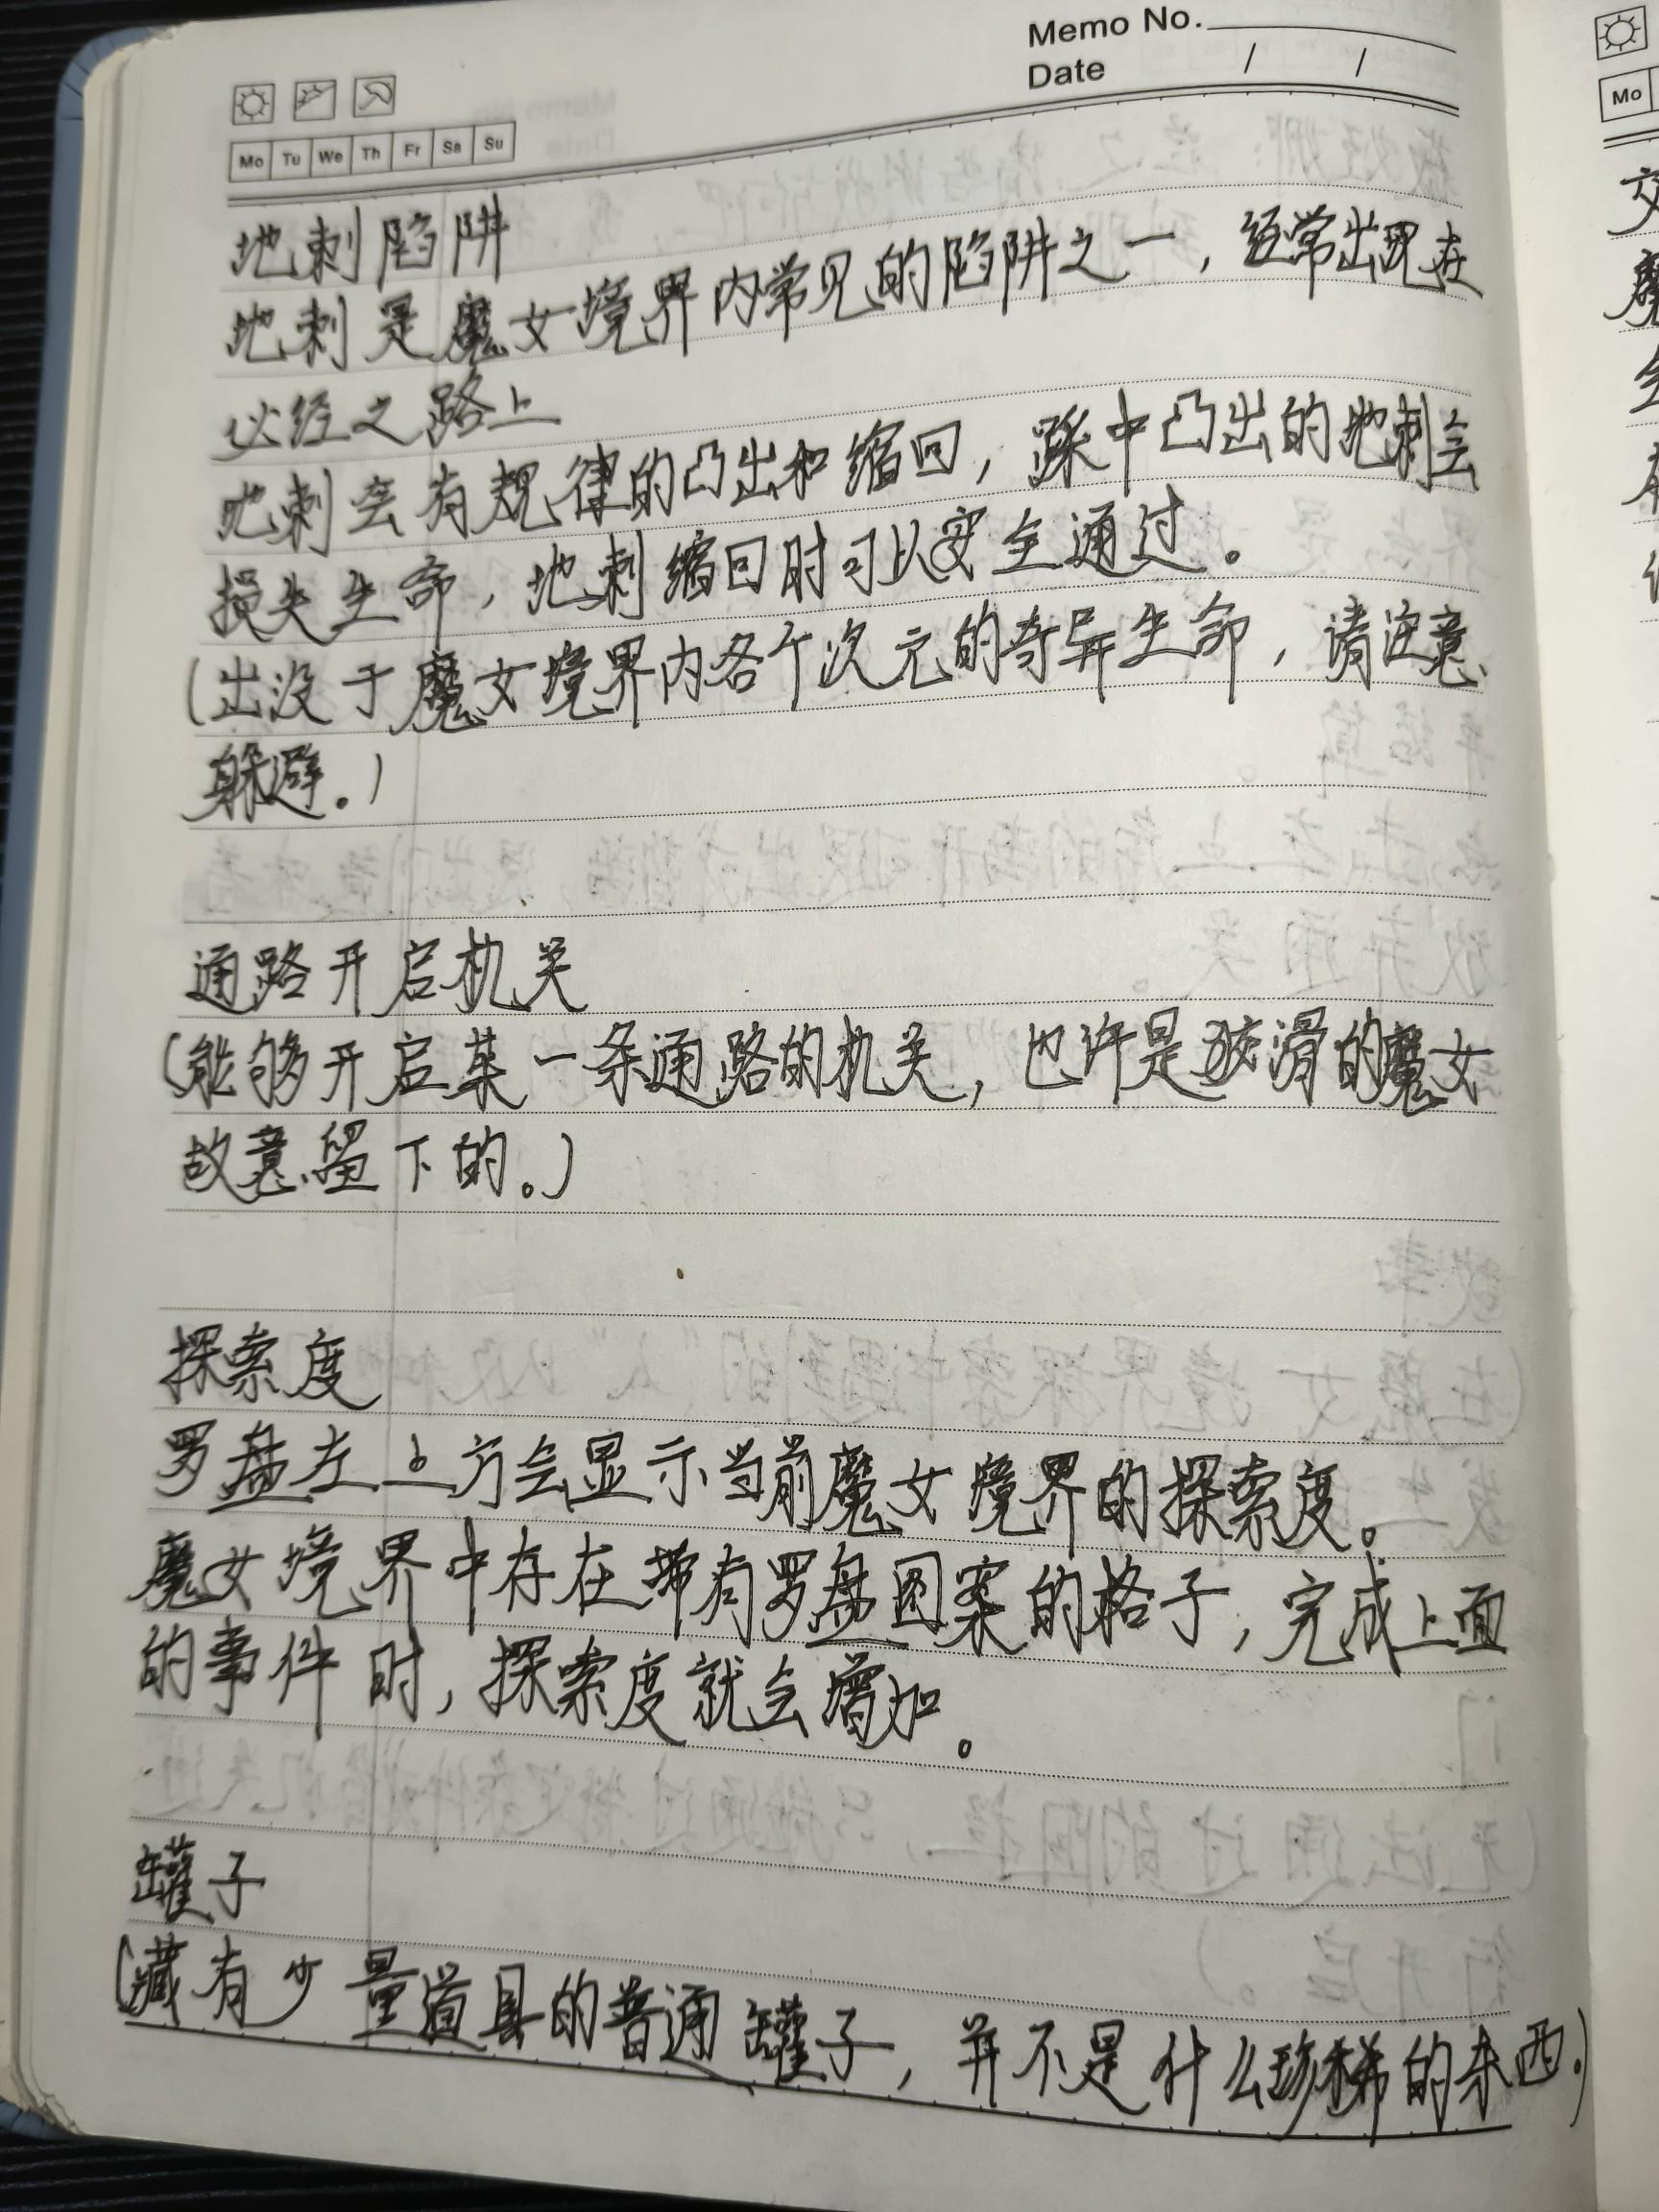 Memo No.
Date / /
Mo Tu We Th Fr Sa Su
地刺陷阱
地刺是魔女境界内常见的陷阱之一，经常出现在
必经之路上
地刺会有规律的凸出和缩回，踩中凸出的地刺会
损失生命，地刺缩回时可以安全通过。
(出没于魔女境界内各个次元的奇异生命，请注意
躲避。)
通路开启机关
(能够开启某一条通路的机关，也许是狡猾的魔女
故意留下的。)
探索度
罗盘左上方会显示当前魔女境界的探索度。
魔女境界中存在带有罗盘图案的格子，完成上面
的事件时，探索度就会增加。
罐子
(藏有少量道具的普通罐子，并不是什么珍稀的东西。)
Mo
交
魔
会